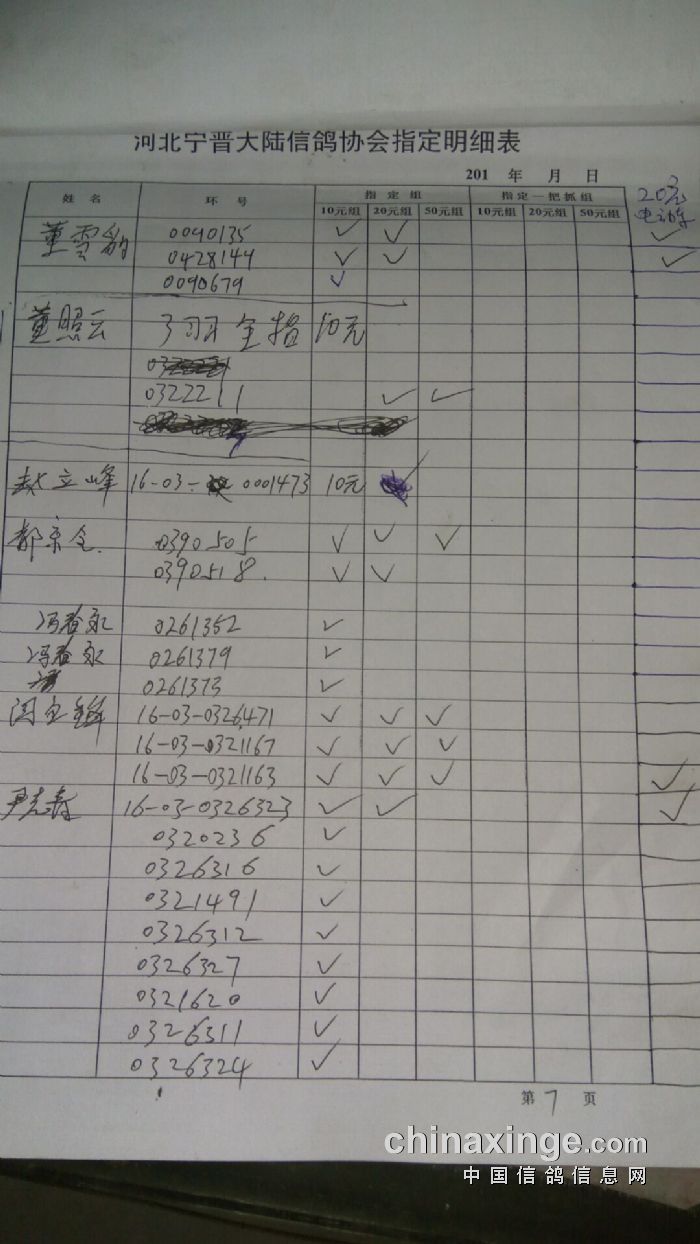 河北宁晋大陆信鸽协会指定明细表
201 年 月 日
姓名 环号 指定组 指定一把抓组 20元
10元组 20元组 50元组 10元组 20元组 50元组 电动车
董雪豹 0090135 ✓ ✓ ✓
0428144 ✓ ✓ ✓
0090679 ✓
董照云 3羽全指10元
0322211 ✓ ✓
赵立峰 16-03- 0001473 10元
都京仓 0390505 ✓ ✓ ✓
0390518. ✓ ✓
冯春永 0261352 ✓
冯春永 0261379 ✓
0261373 ✓
闫 16-03-0326471 ✓ ✓ ✓
16-03-0321167 ✓ ✓ ✓
16-03-0321163 ✓ ✓ ✓ ✓
尹志 16-03-0326323 ✓ ✓ ✓
0320236 ✓
0326316 ✓
0321491 ✓
0326312 ✓
0326327 ✓
0321620 ✓
0326311 ✓
0326324 ✓
第 7 页
chinaxinge.com
中国信鸽信息网